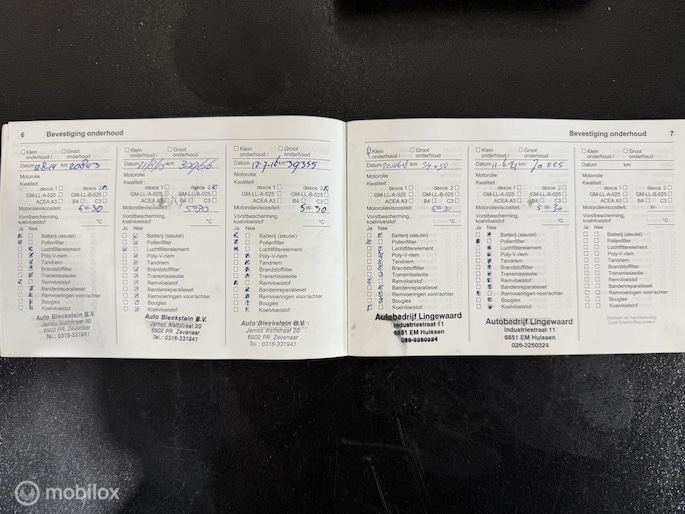 6
Bevestiging onderhoud
Klein onderhoud / Groot onderhoud
Datum 12.8.14 km 20843
Motorolie
Kwaliteit
dexos 1 dexos 2
GM-LL-A-025 GM-LL-B-025
ACEA A3 B4 C3
Motorolieviscositeit: 5 W- 30
Vorstbescherming, koelvloeistof °C
Ja Nee
Batterij (sleutel)
Pollenfilter
Luchtfilterelement
Poly-V-riem
Tandriem
Brandstoffilter
Transmissieolie
Remvloeistof
Bandenreparatieset
Remvoeringen voor/achter
Bougies
Koelvloeistof
Auto Bleekstein B.V.
James Wattstraat 20
6902 PR Zevenaar
Tel.: 0316-331941
Klein onderhoud / Groot onderhoud
Datum km 30966
Motorolie
Kwaliteit
dexos 1 dexos 2
GM-LL-A-025 GM-LL-B-025
ACEA A3 B4 C3
Motorolieviscositeit:
Vorstbescherming, koelvloeistof °C
Ja Nee
Batterij (sleutel)
Pollenfilter
Luchtfilterelement
Poly-V-riem
Tandriem
Brandstoffilter
Transmissieolie
Remvloeistof
Bandenreparatieset
Remvoeringen voor/achter
Bougies
Koelvloeistof
Auto Bleekstein B.V.
James Wattstraat 20
6902 PR Zevenaar
Tel.: 0316-331941
Klein onderhoud / Groot onderhoud
Datum 12-7-16 km 39355
Motorolie
Kwaliteit
dexos 1 dexos 2
GM-LL-A-025 GM-LL-B-025
ACEA A3 B4 C3
Motorolieviscositeit: 5 W- 30
Vorstbescherming, koelvloeistof °C
Ja Nee
Batterij (sleutel)
Pollenfilter
Luchtfilterelement
Poly-V-riem
Tandriem
Brandstoffilter
Transmissieolie
Remvloeistof
Bandenreparatieset
Remvoeringen voor/achter
Bougies
Koelvloeistof
Auto Bleekstein B.V.
James Wattstraat 20
6902 PR Zevenaar
Tel.: 0316-331941
Bevestiging onderhoud
7
Klein onderhoud / Groot onderhoud
Datum km 54.050
Motorolie
Kwaliteit
dexos 1 dexos 2
GM-LL-A-025 GM-LL-B-025
ACEA A3 B4 C3
Motorolieviscositeit: 5 W- 30
Vorstbescherming, koelvloeistof °C
Ja Nee
Batterij (sleutel)
Pollenfilter
Luchtfilterelement
Poly-V-riem
Tandriem
Brandstoffilter
Transmissieolie
Remvloeistof
Bandenreparatieset
Remvoeringen voor/achter
Bougies
Koelvloeistof
Autobedrijf Lingewaard
Industriestraat 11
6851 EM Huissen
026-3250324
Klein onderhoud / Groot onderhoud
Datum 11-6-21 km 70 055
Motorolie
Kwaliteit
dexos 1 dexos 2
GM-LL-A-025 GM-LL-B-025
ACEA A3 B4 C3
Motorolieviscositeit: 5 W- 30
Vorstbescherming, koelvloeistof °C
Ja Nee
Batterij (sleutel)
Pollenfilter
Luchtfilterelement
Poly-V-riem
Tandriem
Brandstoffilter
Transmissieolie
Remvloeistof
Bandenreparatieset
Remvoeringen voor/achter
Bougies
Koelvloeistof
Autobedrijf Lingewaard
Industriestraat 11
6851 EM Huissen
026-3250324
Klein onderhoud / Groot onderhoud
Datum km
Motorolie
Kwaliteit
dexos 1 dexos 2
GM-LL-A-025 GM-LL-B-025
ACEA A3 B4 C3
Motorolieviscositeit: W-
Vorstbescherming, koelvloeistof °C
Ja Nee
Batterij (sleutel)
Pollenfilter
Luchtfilterelement
Poly-V-riem
Tandriem
Brandstoffilter
Transmissieolie
Remvloeistof
Bandenreparatieset
Remvoeringen voor/achter
Bougies
Koelvloeistof
Stempel en handtekening
Opel Erkend Reparateur
mobilox